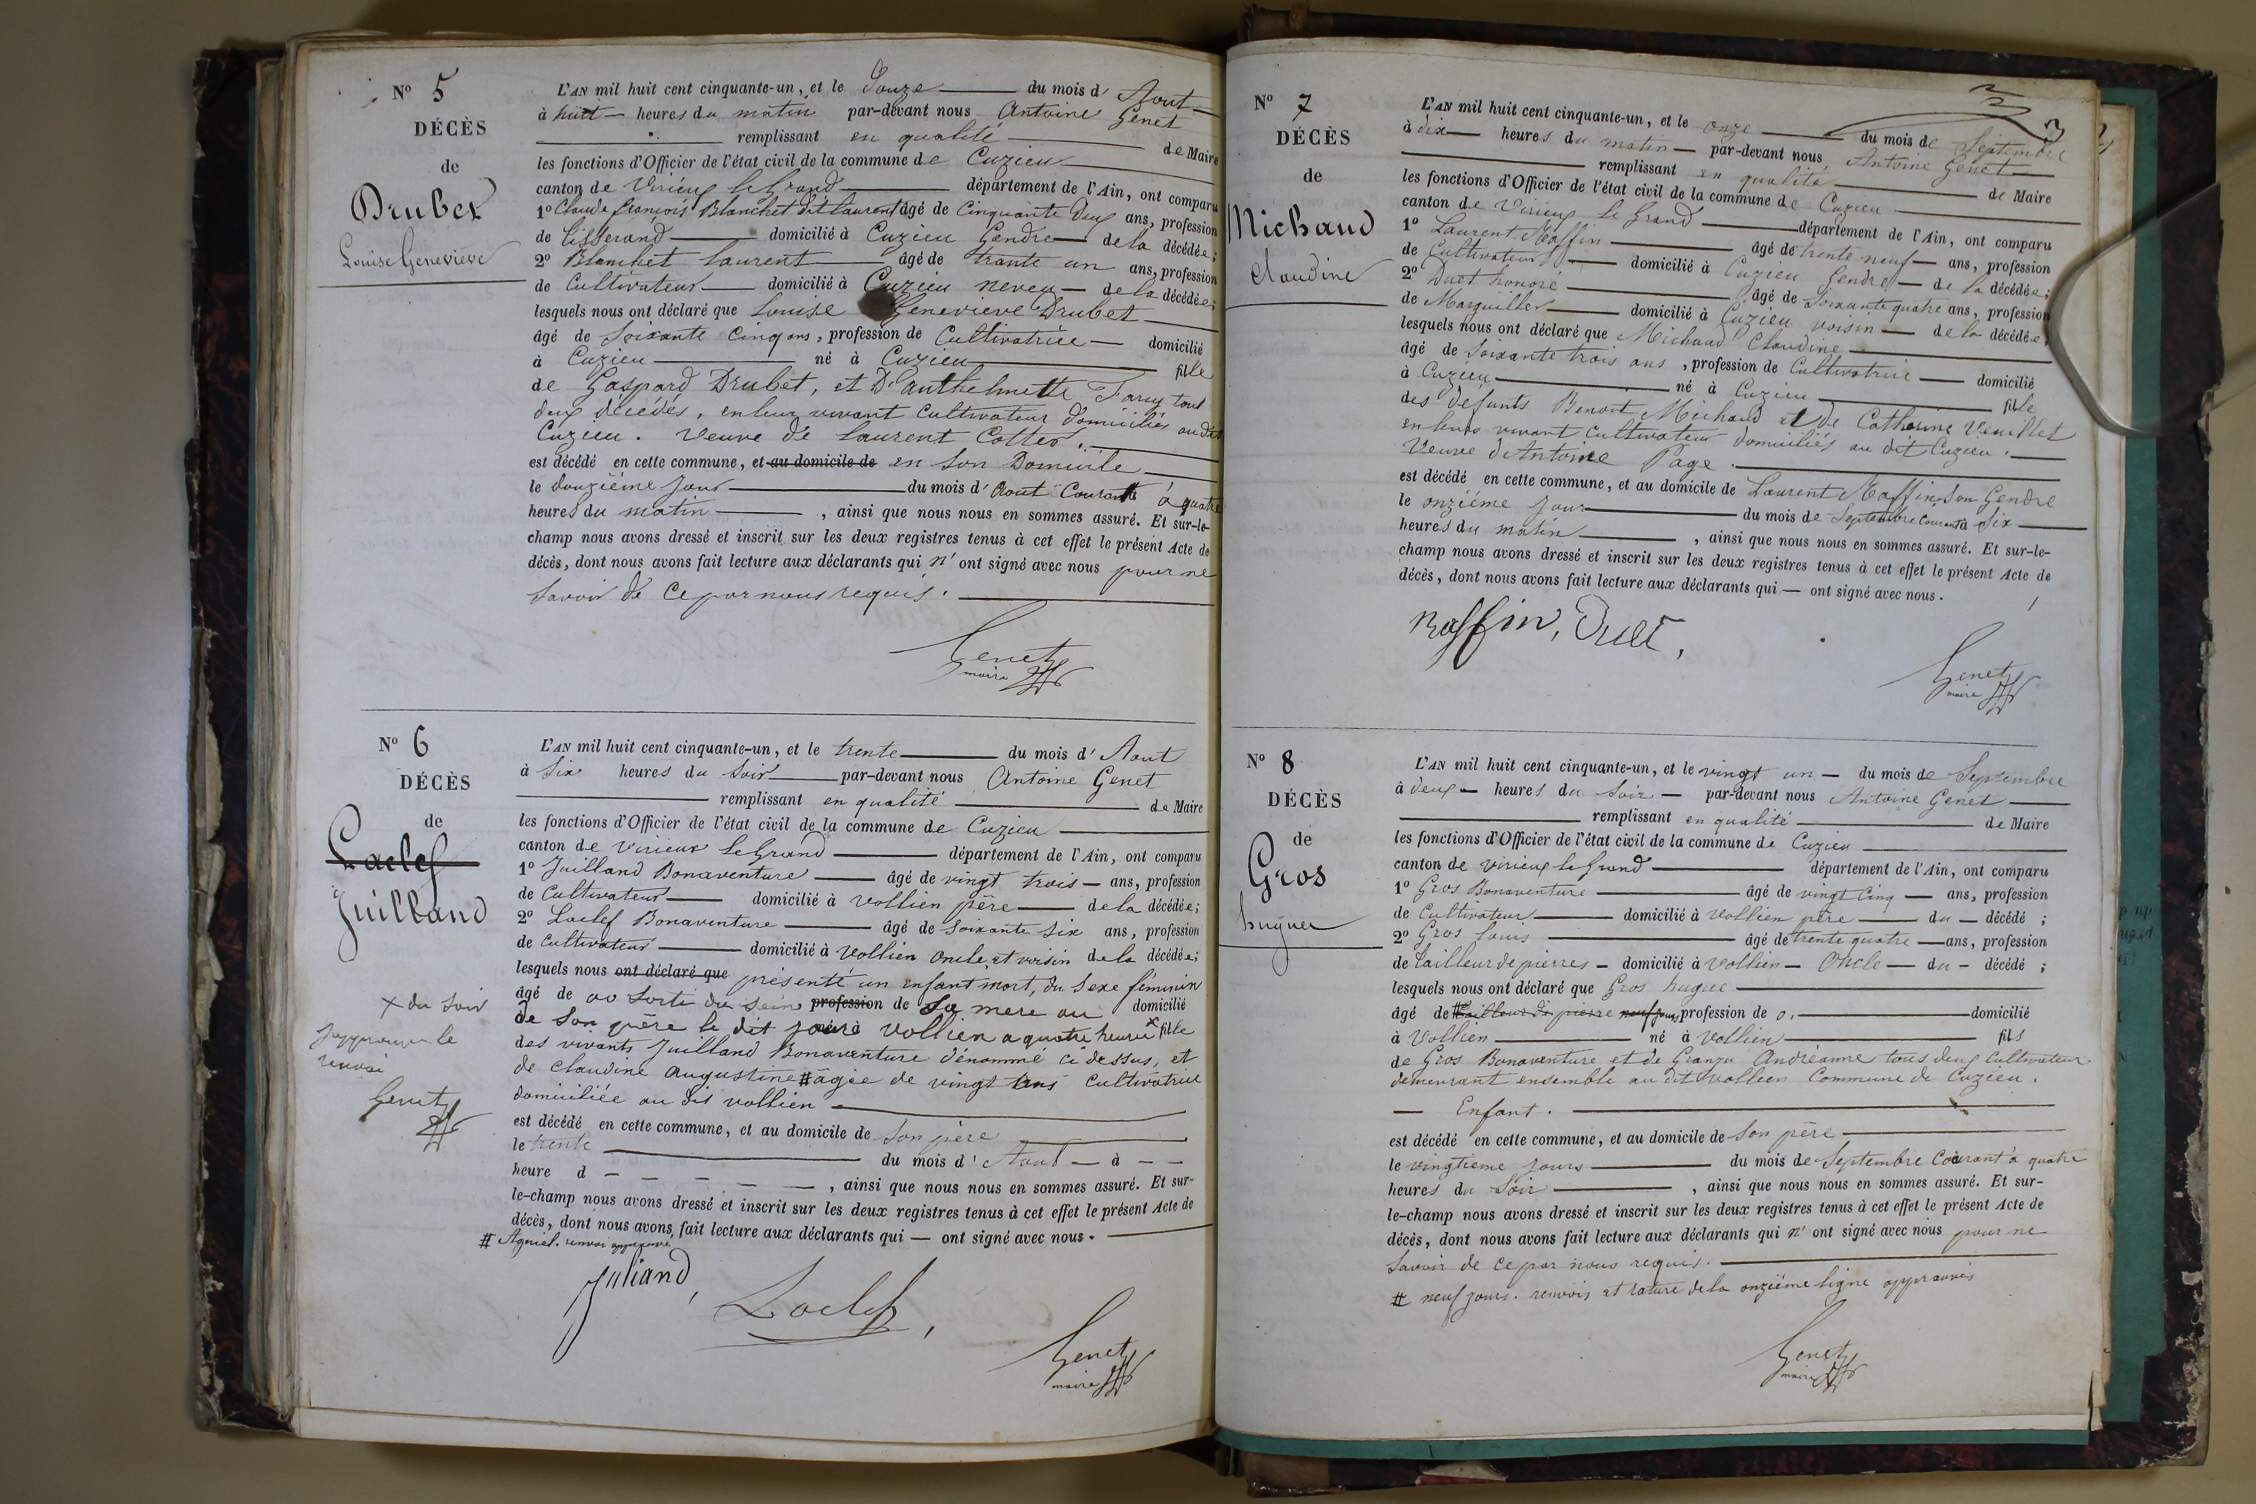 N° 5
DÉCÈS
de
Drubet
Louise Geneviève
L'AN mil huit cent cinquante-un, et le Douze du mois d' Aout
à huit heures du matin par-devant nous Antoine Genet
remplissant en qualité de Maire
les fonctions d'Officier de l'état civil de la commune de Cuzieu
canton de Virieu le Grand département de l'Ain, ont comparu
1° Claude françois Blanchet dit laurent âgé de Cinquante deux ans, profession
de tisserand domicilié à Cuzieu Gendre de la décédée;
2° Blanchet laurent âgé de trante un ans, profession
de Cultivateur domicilié à Cuzieu neveu de la décédée;
lesquels nous ont déclaré que Louise Geneviève Drubet
âgé de Soixante Cinq ans, profession de Cultivatrice domicilié
à Cuzieu né à Cuzieu fille
de Gaspard Drubet, et D'anthelmette tout
deux décédés, en leur vivant Cultivateur domiciliés au dit
Cuzieu. Veuve de laurent Cottet.
est décédé en cette commune, et au domicile de en Son Domicile
le douzième jour du mois d' Aout Courant à quatre
heures du matin, ainsi que nous nous en sommes assuré. Et sur-le-
champ nous avons dressé et inscrit sur les deux registres tenus à cet effet le présent Acte de
décès, dont nous avons fait lecture aux déclarants qui n' ont signé avec nous pour ne
Savoir de ce par nous requis.
Genet
maire
N° 6
DÉCÈS
de
Laclef
Juilland
L'AN mil huit cent cinquante-un, et le trente du mois d' Aout
à Six heures du Soir par-devant nous Antoine Genet
remplissant en qualité de Maire
les fonctions d'Officier de l'état civil de la commune de Cuzieu
canton de Virieux le Grand département de l'Ain, ont comparu
1° Juilland Bonaventure âgé de vingt trois ans, profession
de Cultivateur domicilié à Vollien père de la décédée;
2° Laclef Bonaventure âgé de Soixante Six ans, profession
de Cultivateur domicilié à Vollien oncle et voisin de la décédée;
lesquels nous ont déclaré que présenté un enfant mort, du Sexe féminin
âgé de 00 Sorti du Sein profession de Sa mere au domicilié
de Son père le dit jour né à Vollien a quatre heures × fille
des vivants Juilland Bonaventure dénommé ci dessus, et
de Claudine augustine # âgée de vingt ans Cultivatrice
domiciliée au dit vollien
est décédé en cette commune, et au domicile de Son père
le trente du mois d' Aout à
heure d, ainsi que nous nous en sommes assuré. Et sur-
le-champ nous avons dressé et inscrit sur les deux registres tenus à cet effet le présent Acte de
décès, dont nous avons fait lecture aux déclarants qui — ont signé avec nous.
# Agniel. renvoi approuvé
× du Soir
J'approuve le
renvoi
Genet
Juliand,
Laclef,
Genet
maire
N° 7
DÉCÈS
de
Michaud
Claudine
3
L'AN mil huit cent cinquante-un, et le onze du mois de Septembre
à dix heures du matin par-devant nous Antoine Genet
remplissant en qualité de Maire
les fonctions d'Officier de l'état civil de la commune de Cuzieu
canton de Virieu le Grand département de l'Ain, ont comparu
1° Laurent Raffin âgé de trente neuf ans, profession
de Cultivateur domicilié à Cuzieu Gendre de la décédée;
2° Duet honoré âgé de Soixante quatre ans, profession
de Marguiller domicilié à Cuzieu voisin de la décédée;
lesquels nous ont déclaré que Michaud Claudine
âgé de Soixante trois ans, profession de Cultivatrice domicilié
à Cuzieu né à Cuzieu fille
des défunts Benoit Michaud et de Catherine Veuillet
en leurs vivant Cultivateur domiciliés au dit Cuzieu.
Veuve d'Antoine Page.
est décédé en cette commune, et au domicile de Laurent Raffin Son Gendre
le onzième jour du mois de Septembre Courant à Six
heures du matin, ainsi que nous nous en sommes assuré. Et sur-le-
champ nous avons dressé et inscrit sur les deux registres tenus à cet effet le présent Acte de
décès, dont nous avons fait lecture aux déclarants qui — ont signé avec nous.
Raffin, Duet,
Genet
maire
N° 8
DÉCÈS
de
Gros
hugue
L'AN mil huit cent cinquante-un, et le vingt un du mois de Septembre
à deux heures du Soir par-devant nous Antoine Genet
remplissant en qualité de Maire
les fonctions d'Officier de l'état civil de la commune de Cuzieu
canton de virieu le Grand département de l'Ain, ont comparu
1° Gros Bonaventure âgé de vingt Cinq ans, profession
de Cultivateur domicilié à Vollien père du décédé;
2° Gros Louis âgé de trente quatre ans, profession
de tailleur de pierres domicilié à Vollien Oncle du décédé;
lesquels nous ont déclaré que Gros hugue
âgé de # tailleur de pierre neuf jours profession de 0. domicilié
à Vollien né à Vollien fils
de Gros Bonaventure et de Andréanne tous deux Cultivateur
demeurant ensemble au dit Vollien Commune de Cuzieu.
Enfant.
est décédé en cette commune, et au domicile de Son père
le vingtieme jours du mois de Septembre Courant à quatre
heures du Soir, ainsi que nous nous en sommes assuré. Et sur-
le-champ nous avons dressé et inscrit sur les deux registres tenus à cet effet le présent Acte de
décès, dont nous avons fait lecture aux déclarants qui n' ont signé avec nous pour ne
Savoir de ce par nous requis.
# neuf jours. renvois et rature de la onzième ligne approuvés
Genet
maire